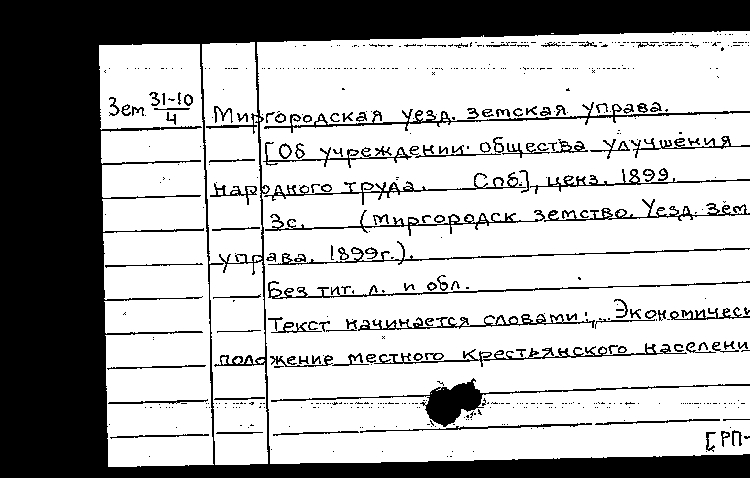 Зем 31-10/4
Миргородская уезд. земская управа.
[Об учреждении общества улучшения
народного труда. Спб.], ценз. 1899.
3с. (Миргородск. земство. Уезд. зем
управа. 1899г.).
Без тит. л. и обл.
Текст начинается словами: „Экономическ
положение местного крестьянского населени
[РП-